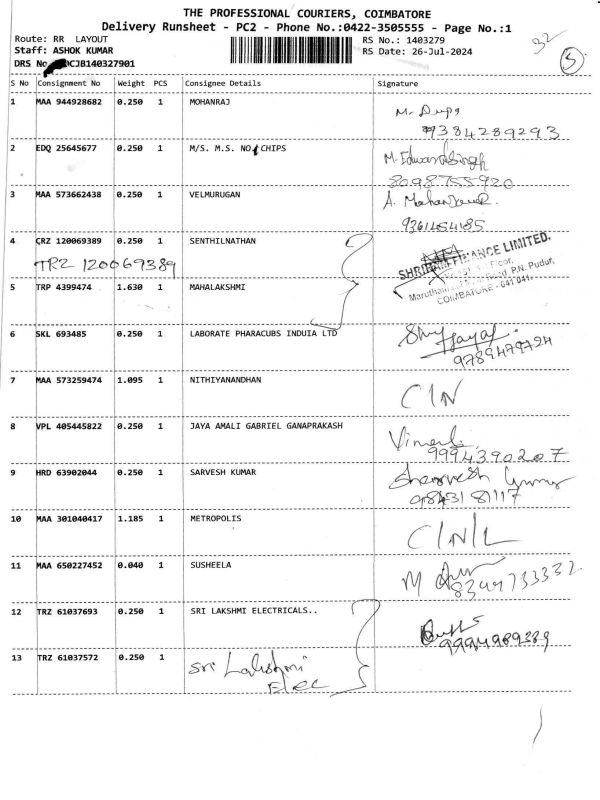 THE PROFESSIONAL COURIERS, COIMBATORE
Delivery Runsheet - PC2 - Phone No.:0422-3505555 - Page No.:1
Route: RR LAYOUT
RS No.: 1403279
32
Staff: ASHOK KUMAR
RS Date: 26-Jul-2024
5
DRS No CJB140327901
S No Consignment No Weight PCS Consignee Details Signature
1 MAA 944928682 0.250 1 MOHANRAJ
9384289293
2 EDQ 25645677 0.250 1 M/S. M.S. NO CHIPS
8098755920
3 MAA 573662438 0.250 1 VELMURUGAN
9361454185
4 CRZ 120069389 0.250 1 SENTHILNATHAN
TRZ 120069389
SHRIRAM FINANCE LIMITED.
Floor,
P.N. Pudur,
COIMBATORE - 641 041
5 TRP 4399474 1.630 1 MAHALAKSHMI
6 SKL 693485 0.250 1 LABORATE PHARACUBS INDUIA LTD
9789479724
7 MAA 573259474 1.095 1 NITHIYANANDHAN
C/N
8 VPL 405445822 0.250 1 JAYA AMALI GABRIEL GANAPRAKASH
9994390207
9 HRD 63902044 0.250 1 SARVESH KUMAR
9843181117
10 MAA 301040417 1.185 1 METROPOLIS
C/N/L
11 MAA 650227452 0.040 1 SUSHEELA
8344733332
12 TRZ 61037693 0.250 1 SRI LAKSHMI ELECTRICALS..
9994989389
13 TRZ 61037572 0.250 1 Sri Lakshmi
Elec